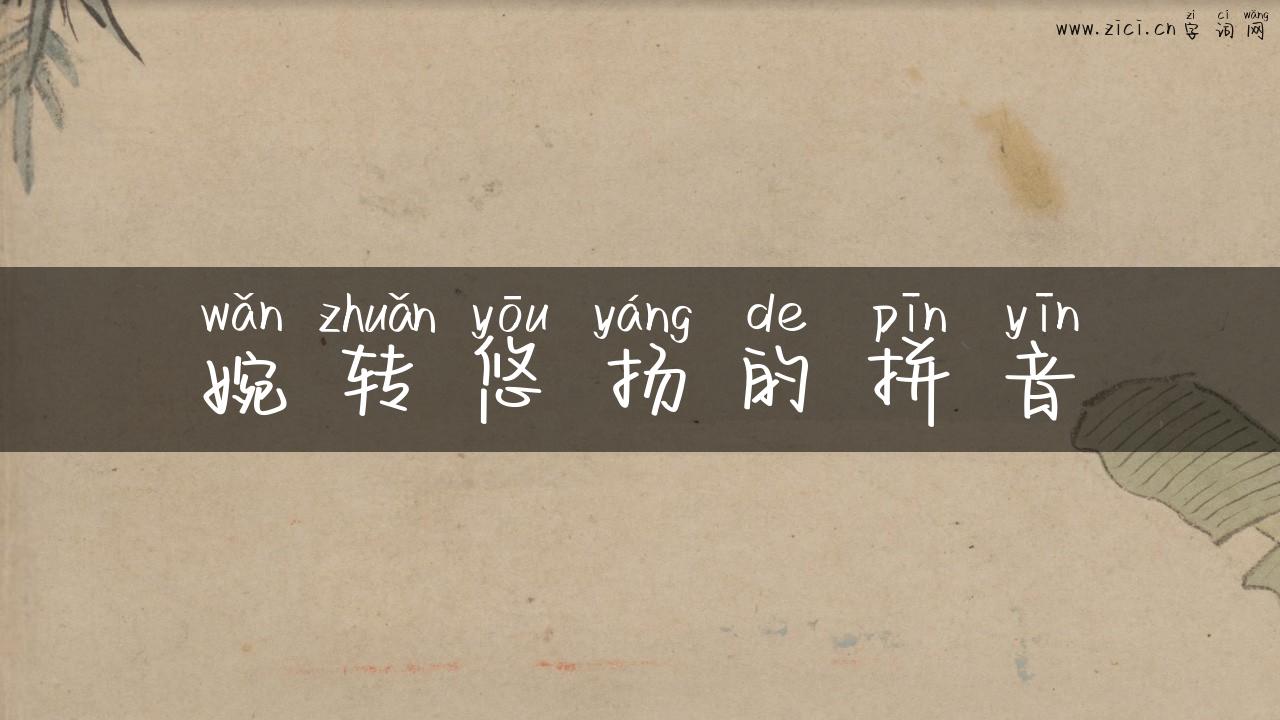 zì cí wǎng
www.zici.cn 字词网
wǎn zhuǎn yōu yáng de pīn yīn
婉转悠扬的拼音